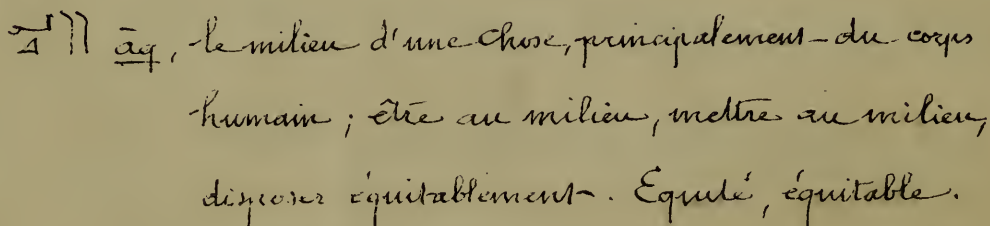 āq, le milieu d'une chose, principalement du corps
humain ; être au milieu, mettre au milieu,
disposer équitablement. Equité, équitable.